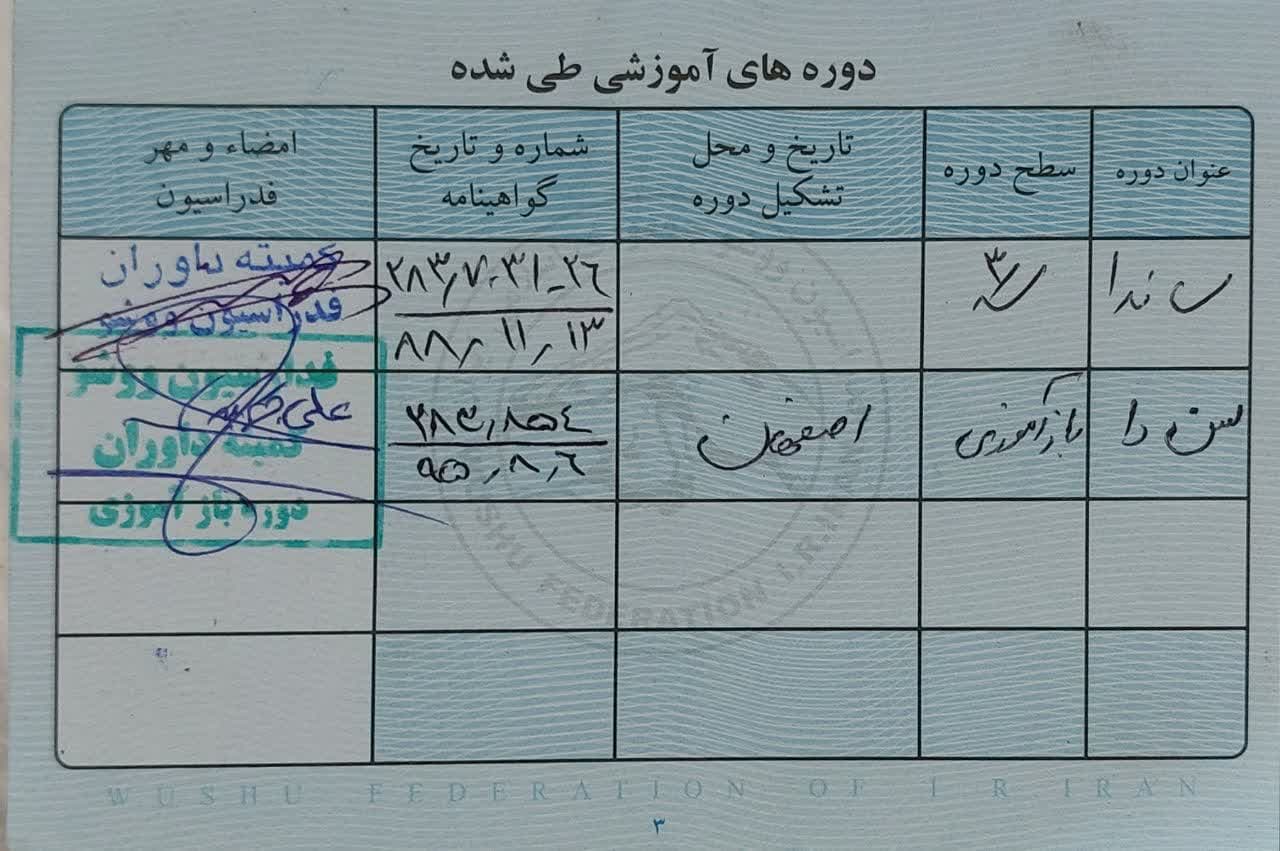 دوره های آموزشی طی شده
عنوان دوره
سطح دوره
تاریخ و محل
تشکیل دوره
شماره و تاریخ
گواهینامه
امضاء و مهر
فدراسیون
ساندا
۳
۲۸۳٫۷۰۳۱-۲۶
۸۸٫۱۱٫۱۳
کمیته داوران
فدراسیون ووشو
بازآموزی
اصفهان
۲۸۳٫۸۵۴
۹۵٫۸٫۶
فدراسیون ووشو
کمیته داوران
دوره باز آموزی
WUSHU FEDERATION I.R.IRAN
WUSHU FEDERATION OF I R IRAN
۳